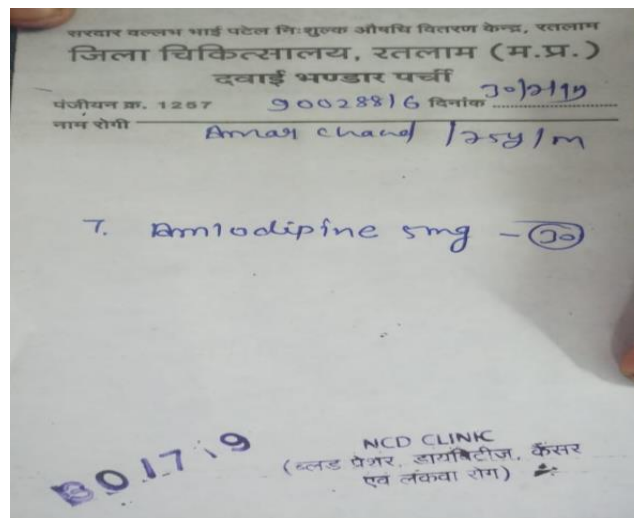 सरदार वल्लभ भाई पटेल निःशुल्क औषधि वितरण केन्द्र, रतलाम
जिला चिकित्सालय, रतलाम (म.प्र.)
दवाई भण्डार पर्ची
पंजीयन क्र. 1257 90028816 दिनांक
नाम रोगी Amar chand /25y/m
7. Amlodipine 5mg -
NCD CLINIC
(ब्लड प्रेशर, डायबिटीज, कैंसर
एवं लकवा रोग)